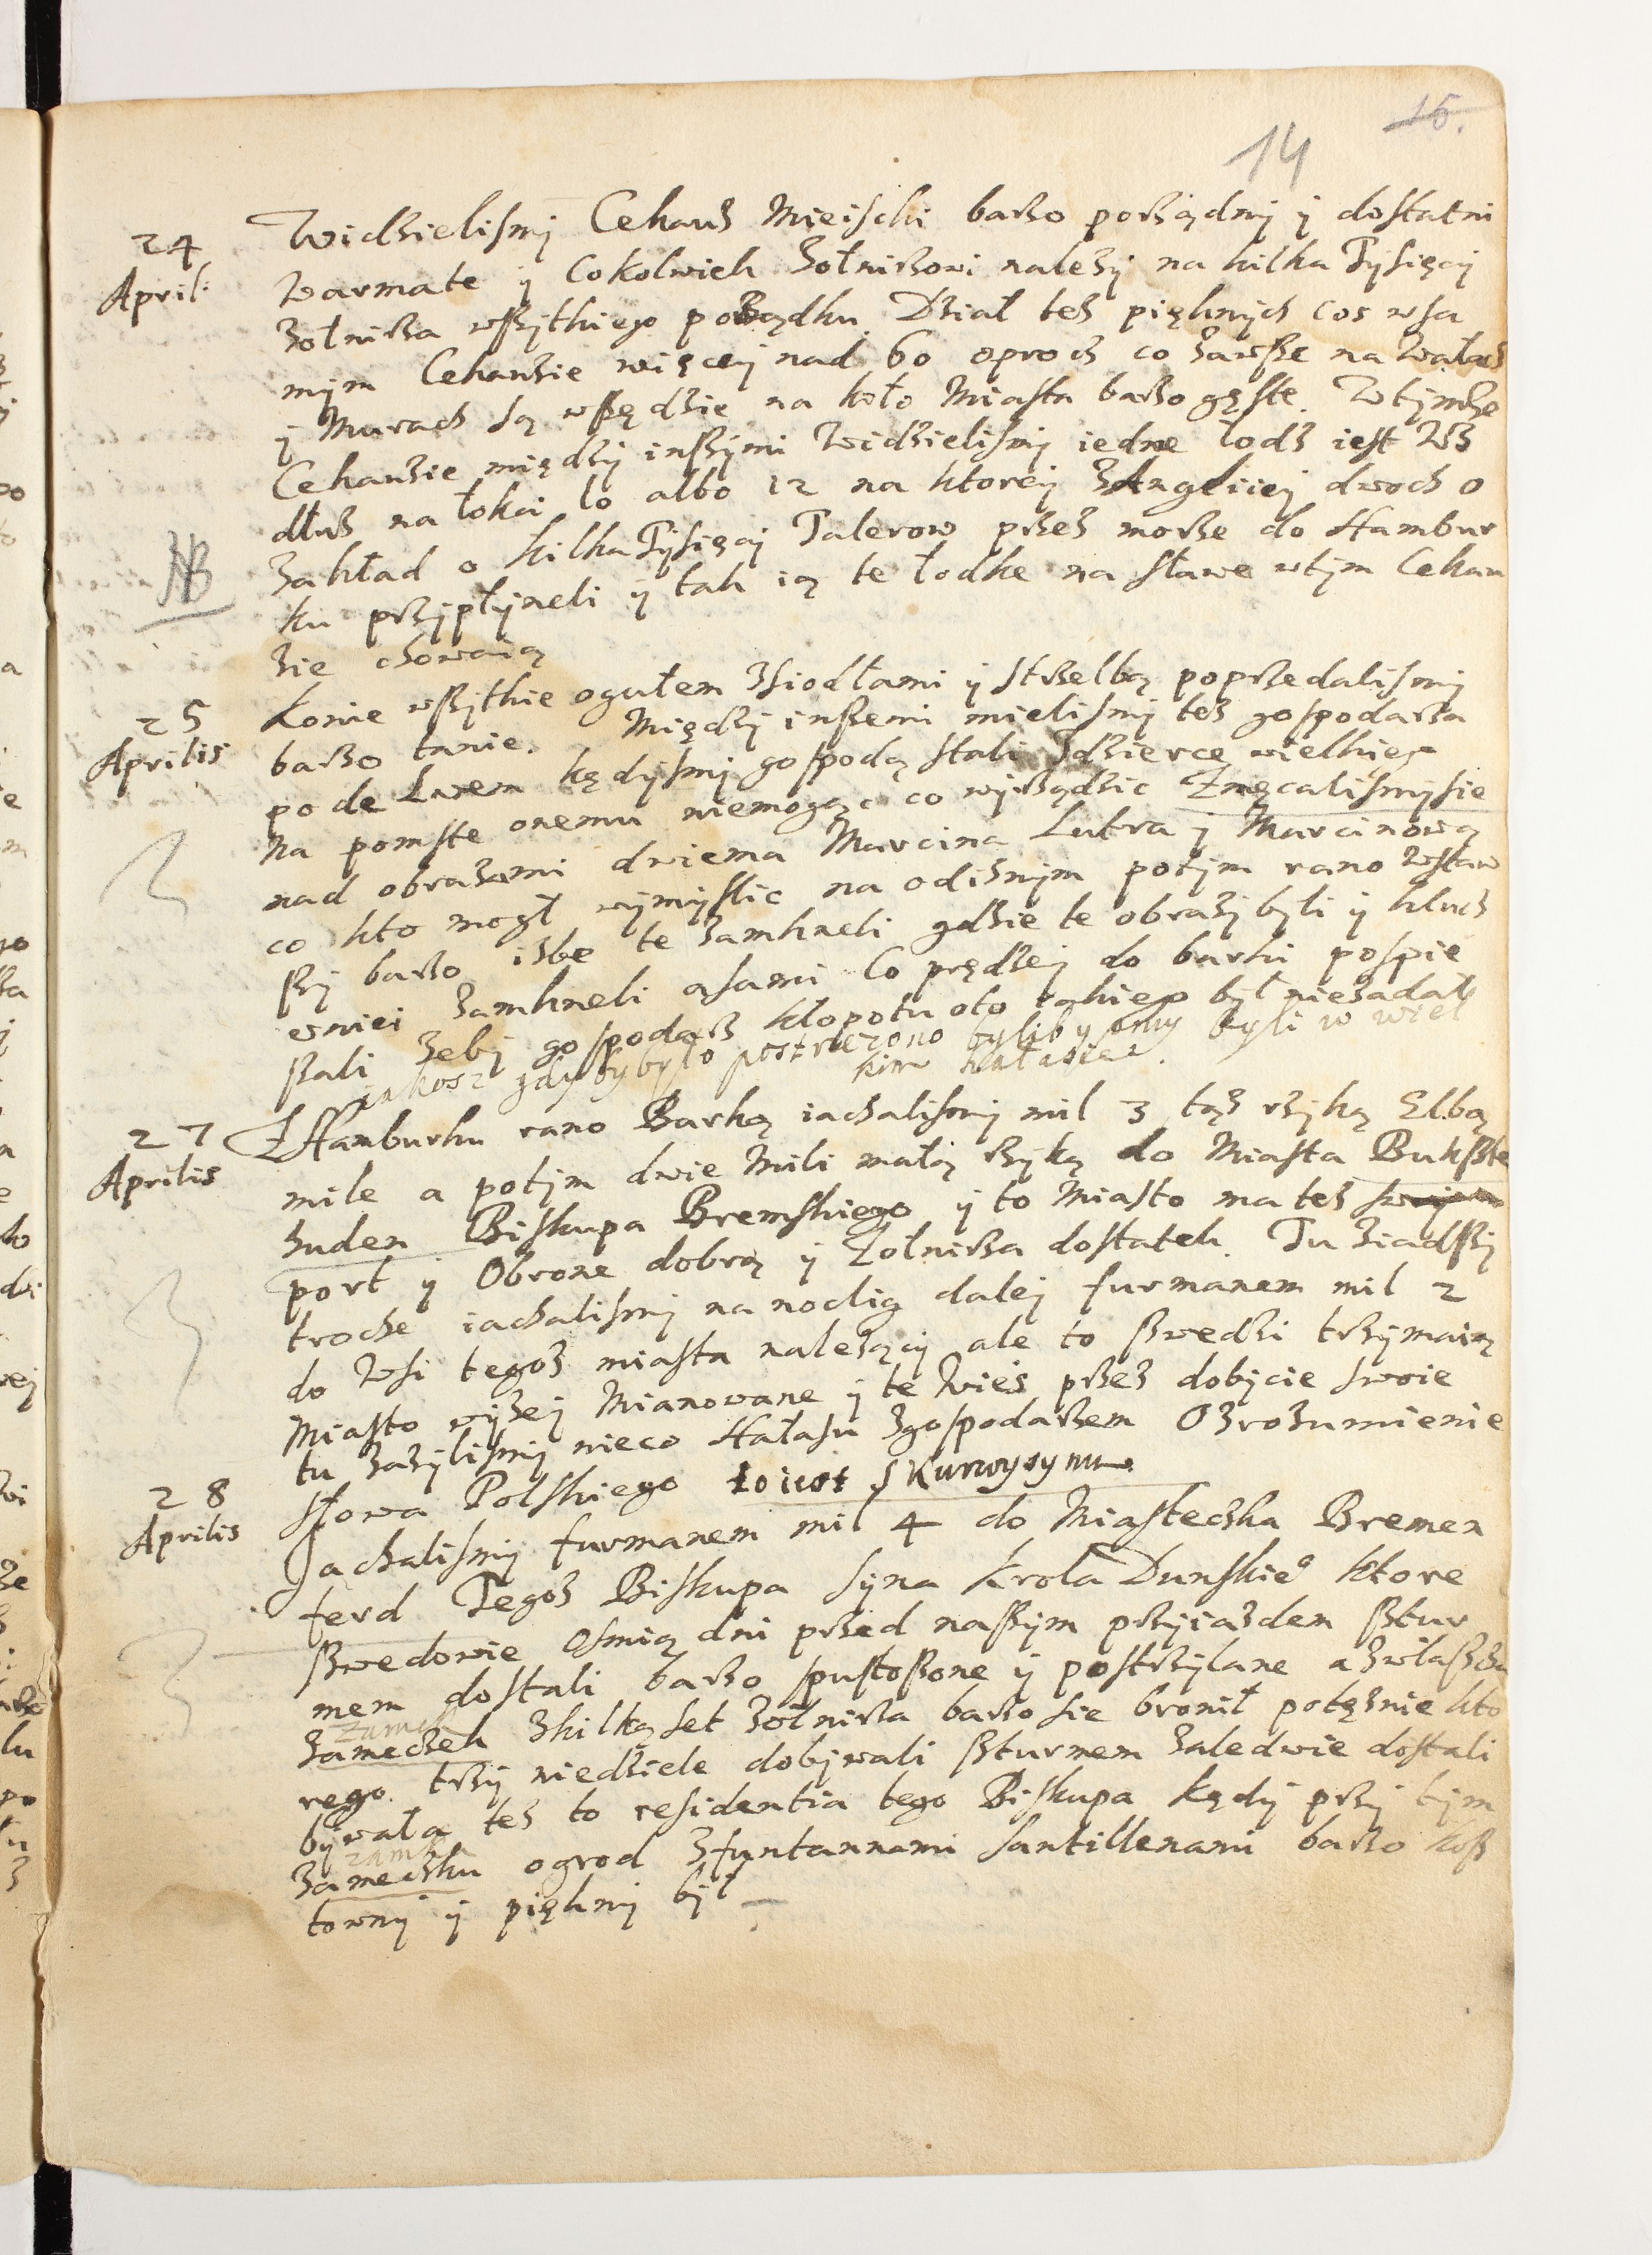 15.
14
24
April:
Widzielismy Cekauz Mieiscki barzo porządny y dostatni
Warmate y cokolwiek Zołnirzowi należy na kilka Tysięcy
żołnirza wszytkiego porządku. Dział tez pięknych cos wsa
mym Cekauzie więcey nad 60 oprocz co zawsze na Wałach
y Murach są wszędzie na koło Miasta barzo gęste. Wtymże
Cekauzie między inszymi Widzielismy iedne łodz iest Wz
dłuz na łokci 10 albo 12 na ktorey zAngliiey dwoch o
zakład o kilka Tysięcy Talerow przez morze do Hambur
ku przypłyneli y tak ią te łodke na sławe wtym Cekau
zie chowaią
NB
25
Aprilis
Konie wszytkie ogułem zsiodłami y strzelbą poprzedalismy
barzo tanie. Między inszemi mielismy tez gospodarza
pode Lwem kędysmy gospodą stali Zdzierce wielkiego
Na pomste onemu niemogąc co wyrządzic Znęcalismysie
nad obrazami dwiema Marcina Lutra y Marcinową
co kto mogł wymyslic na odiznym potym rano Wstaw
szy barzo izbe te zamkneli gdzie te obrazy byli y klucz
wniei zamkneli asami Co prędzey do barki pospie
szali zeby gospodarz kłopotu oto iakiego był niezadał
iakosz gdyby było postrzezono bylibysmy byli w wiel
kim hałasie.
27
Aprilis
Z Hamburku rano Barką iachalismy mil 3 tąż rzyką Elbą
mile a potym dwie Mili małą rzyką do Miasta Buksste
huden Biskupa Bremskiego y to Miasto ma tez
port y Obrone dobrą y Zołnirza dostatek. Tu ziadszy
troche iachalismy na noclig daley furmanem mil 2
do Wsi tegoz miasta należący ale to szwedzi trzymaią
Miasto wyżey Mianowane y te Wies przez dobycie swoie
tu zazylismy nieco Hałasu zgospodarzem Ozrozumienie
słowa Polskiego to iest skurwysynu.
28
Aprilis
Jachalismy furmanem mil 4 do Miasteczka Bremen
ferd Tegoz Biskupa syna Krola Dunskie° ktore
szwedowie osmią dni przed naszym przyiazdem sztur
mem dostali barzo spustoszone y postrzylane a zwłaszcza
Zamek
Zameczek zkilką set żołnirza barzo sie bronił potężnie kto
rego trzy niedziele dobywali szturmem zaledwie dostali
bywała tez to residentia tego Biskupa kędy przy tym
zamku
Zameczku ogrod zfuntannami santillenami barzo kosz
towny y piękny był